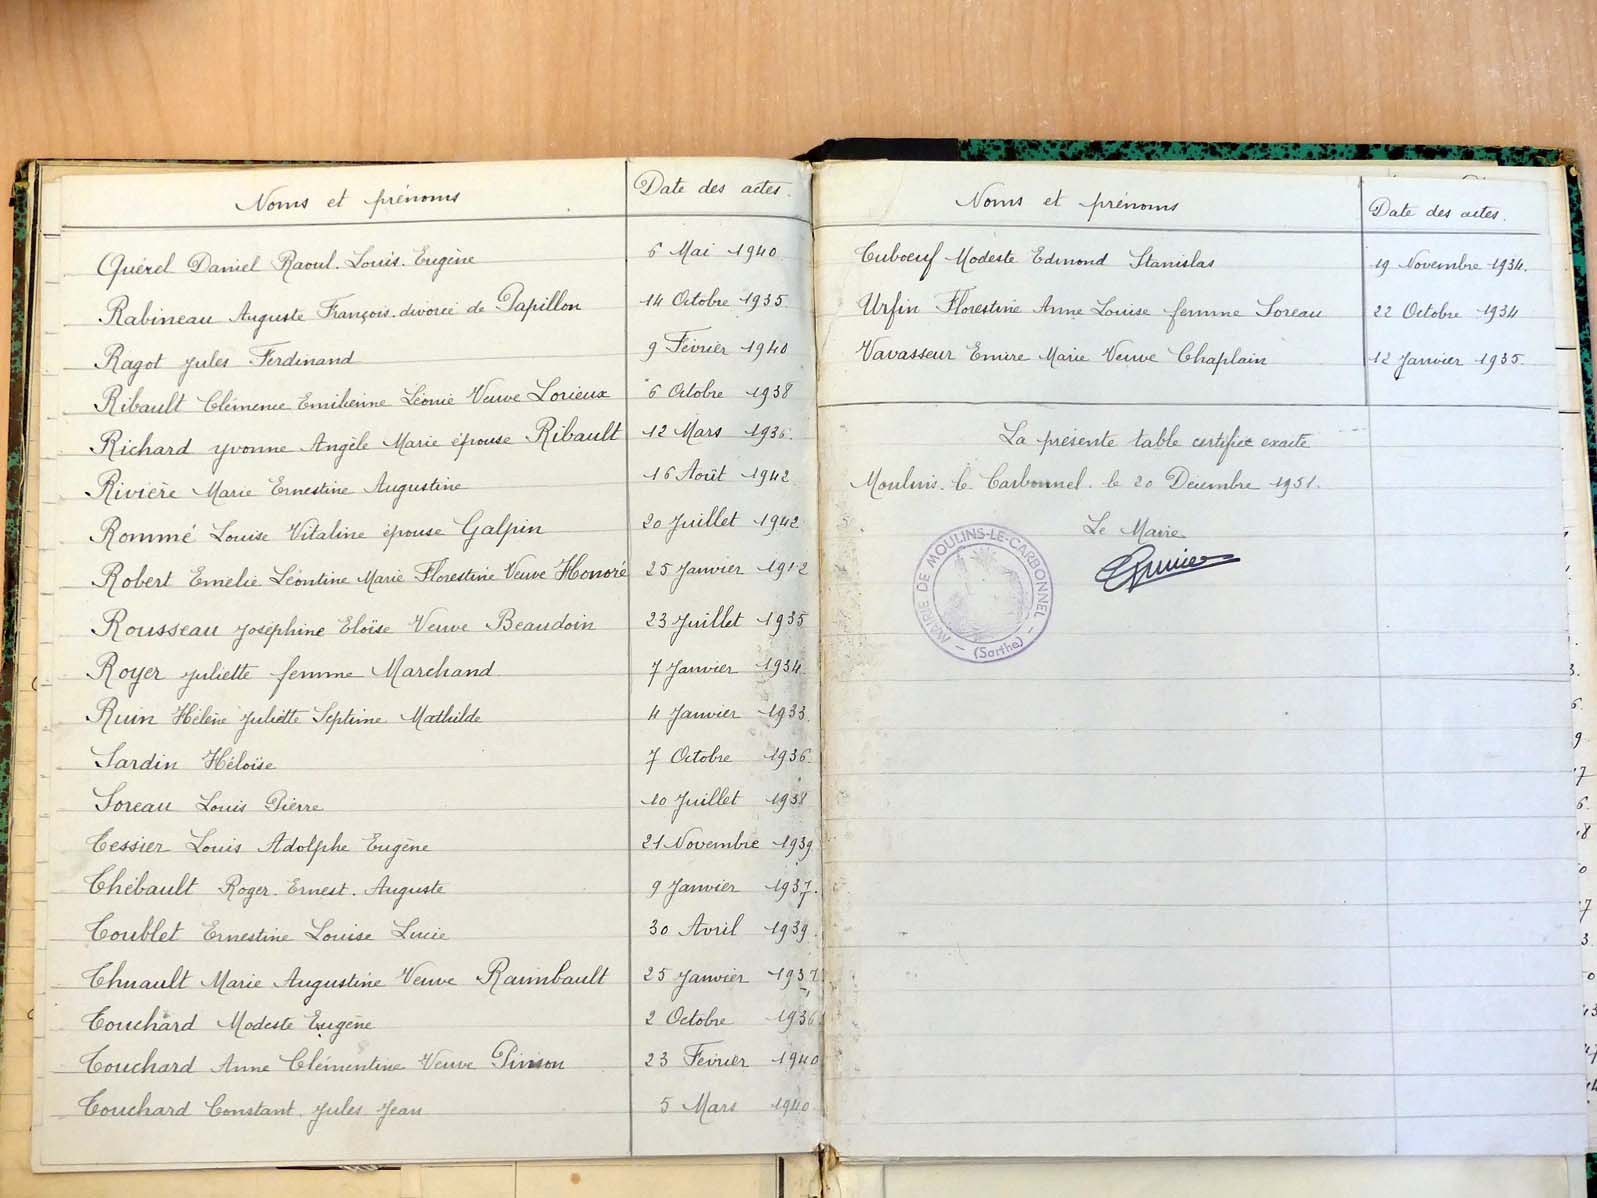 Noms et prénoms Date des actes.
Quérel Daniel Raoul. Louis. Eugène 6 Mai 1940
Rabineau Auguste François. divorcé de Papillon 14 Octobre 1935
Ragot Jules Ferdinand 9 Février 1940
Ribault Clémence Emilienne Léonie Veuve Lorieux 6 Octobre 1938
Richard Yvonne Angèle Marie épouse Ribault 12 Mars 1936.
Rivière Marie Ernestine Augustine 16 Août 1942
Rommé Louise Vitaline épouse Galpin 20 Juillet 1942
Robert Emélie Léontine Marie Florestine Veuve Honoré 25 Janvier
Rousseau Joséphine Eloïse Veuve Beaudoin 23 Juillet 1935
Royer Juliette femme Marchand 7 Janvier 1934
Ruin Hélène Juliette Septime Mathilde 4 Janvier 1933
Sardin Héloïse 7 Octobre 1936
Soreau Louis Pierre 10 Juillet 1938
Tessier Louis Adolphe Eugène 21 Novembre 1939
Thébault Roger. Ernest. Auguste 9 Janvier 1937.
Toublet Ernestine Louise Lucie 30 Avril 1939
Thuault Marie Augustine Veuve Raimbault 25 Janvier 1937
Touchard Modeste Eugène 2 Octobre 1936
Touchard Anne Clémentine Veuve Pinson 23 Février 1940
Touchard Constant Jules Jean 5 Mars 1940
Noms et prénoms Date des actes.
Tuboeuf Modeste Edmond Stanislas 19 Novembre 1934.
Urfin Florestine Anne Louise femme Soreau 22 Octobre 1934
Vavasseur Emire Marie Veuve Chaplain 12 Janvier 1935.
La présente table certifiée exacte
Moulins. le. Carbonnel. le 20 Décembre 1951.
Le Maire
MAIRIE DE MOULINS-LE-CARBONNEL
(Sarthe)